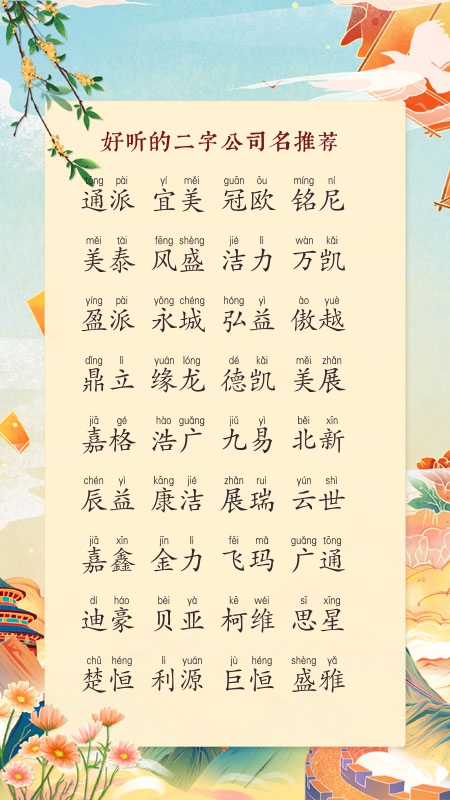 好听的二字公司名推荐
tōng pài yí měi guān ōu míng ní
通派 宜美 冠欧 铭尼
měi tài fēng shèng jié lì wàn kǎi
美泰 风盛 洁力 万凯
yíng pài yǒng chéng hóng yì ào yuè
盈派 永城 弘益 傲越
dǐng lì yuán lóng dé kǎi měi zhǎn
鼎立 缘龙 德凯 美展
jiā gé hào guǎng jiǔ yì běi xīn
嘉格 浩广 九易 北新
chén yì kāng jié zhǎn ruì yún shì
辰益 康洁 展瑞 云世
jiā xīn jīn lì fēi mǎ guǎng tōng
嘉鑫 金力 飞玛 广通
dí háo bèi yà kē wéi sī xīng
迪豪 贝亚 柯维 思星
chǔ héng lì yuán jù héng shèng yǎ
楚恒 利源 巨恒 盛雅